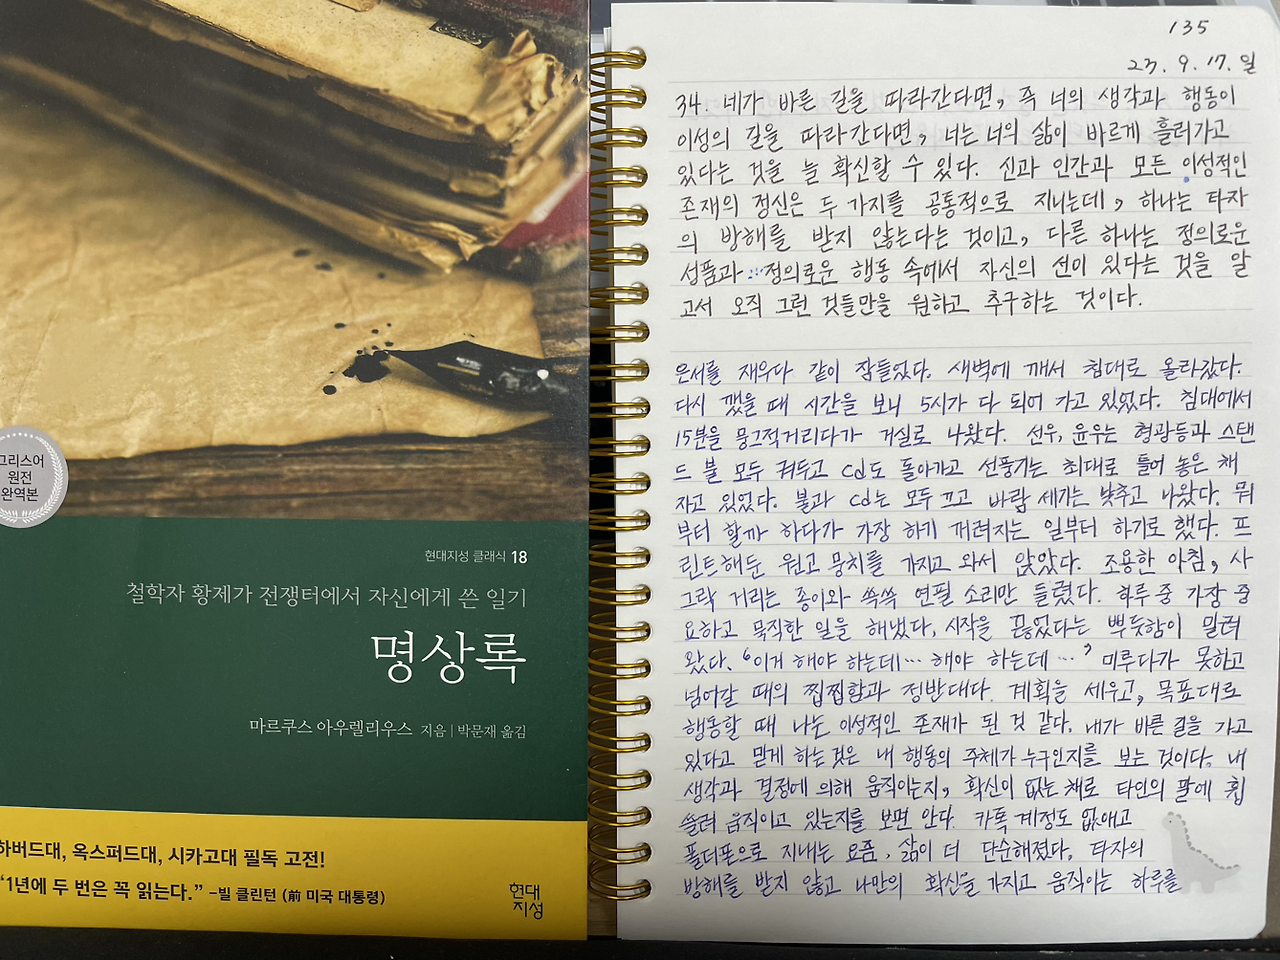 그리스어
원전
완역본
현대지성 클래식 18
철학자 황제가 전쟁터에서 자신에게 쓴 일기
명상록
마르쿠스 아우렐리우스 지음 | 박문재 옮김
하버드대, 옥스퍼드대, 시카고대 필독 고전!
“1년에 두 번은 꼭 읽는다.” –빌 클린턴 (前 미국 대통령)
현대
지성
135
23. 9. 17. 일
34. 네가 바른 길을 따라간다면, 즉 너의 생각과 행동이
이성의 길을 따라간다면, 너는 너의 삶이 바르게 흘러가고
있다는 것을 늘 확신할 수 있다. 신과 인간과 모든 이성적인
존재의 정신은 두 가지를 공통적으로 지니는데, 하나는 타자
의 방해를 받지 않는다는 것이고, 다른 하나는 정의로운
성품과 정의로운 행동 속에서 자신의 선이 있다는 것을 알
고서 오직 그런 것들만을 원하고 추구하는 것이다.
은서를 재우다 같이 잠들었다. 새벽에 깨서 침대로 올라갔다.
다시 깼을 때 시간을 보니 5시가 다 되어 가고 있었다. 침대에서
15분을 뭉그적거리다가 거실로 나왔다. 선우, 윤우는 형광등과 스탠
드 불 모두 켜두고 cd도 돌아가고 선풍기는 최대로 틀어 놓은 채
자고 있었다. 불과 cd는 모두 끄고 바람 세기는 낮추고 나왔다. 뭐
부터 할까 하다가 가장 하기 꺼려지는 일부터 하기로 했다. 프
린트해둔 원고 뭉치를 가지고 와서 앉았다. 조용한 아침, 사
그락 거리는 종이와 쓱쓱 연필 소리만 들렸다. 하루 중 가장 중
요하고 묵직한 일을 해냈다, 시작을 끊었다는 뿌듯함이 밀려
왔다. ‘이거 해야 하는데… 해야 하는데…’ 미루다가 못하고
넘어갈 때의 찝찝함과 정반대다. 계획을 세우고, 목표대로
행동할 때 나는 이성적인 존재가 된 것 같다. 내가 바른 길을 가고
있다고 믿게 하는 것은 내 행동의 주체가 누구인지를 보는 것이다. 내
생각과 결정에 의해 움직이는지, 확신이 없는 채로 타인의 말에 휩
쓸려 움직이고 있는지를 보면 안다. 카톡 계정도 없애고
폴더폰으로 지내는 요즘, 삶이 더 단순해졌다. 타자의
방해를 받지 않고 나만의 확신을 가지고 움직이는 하루를